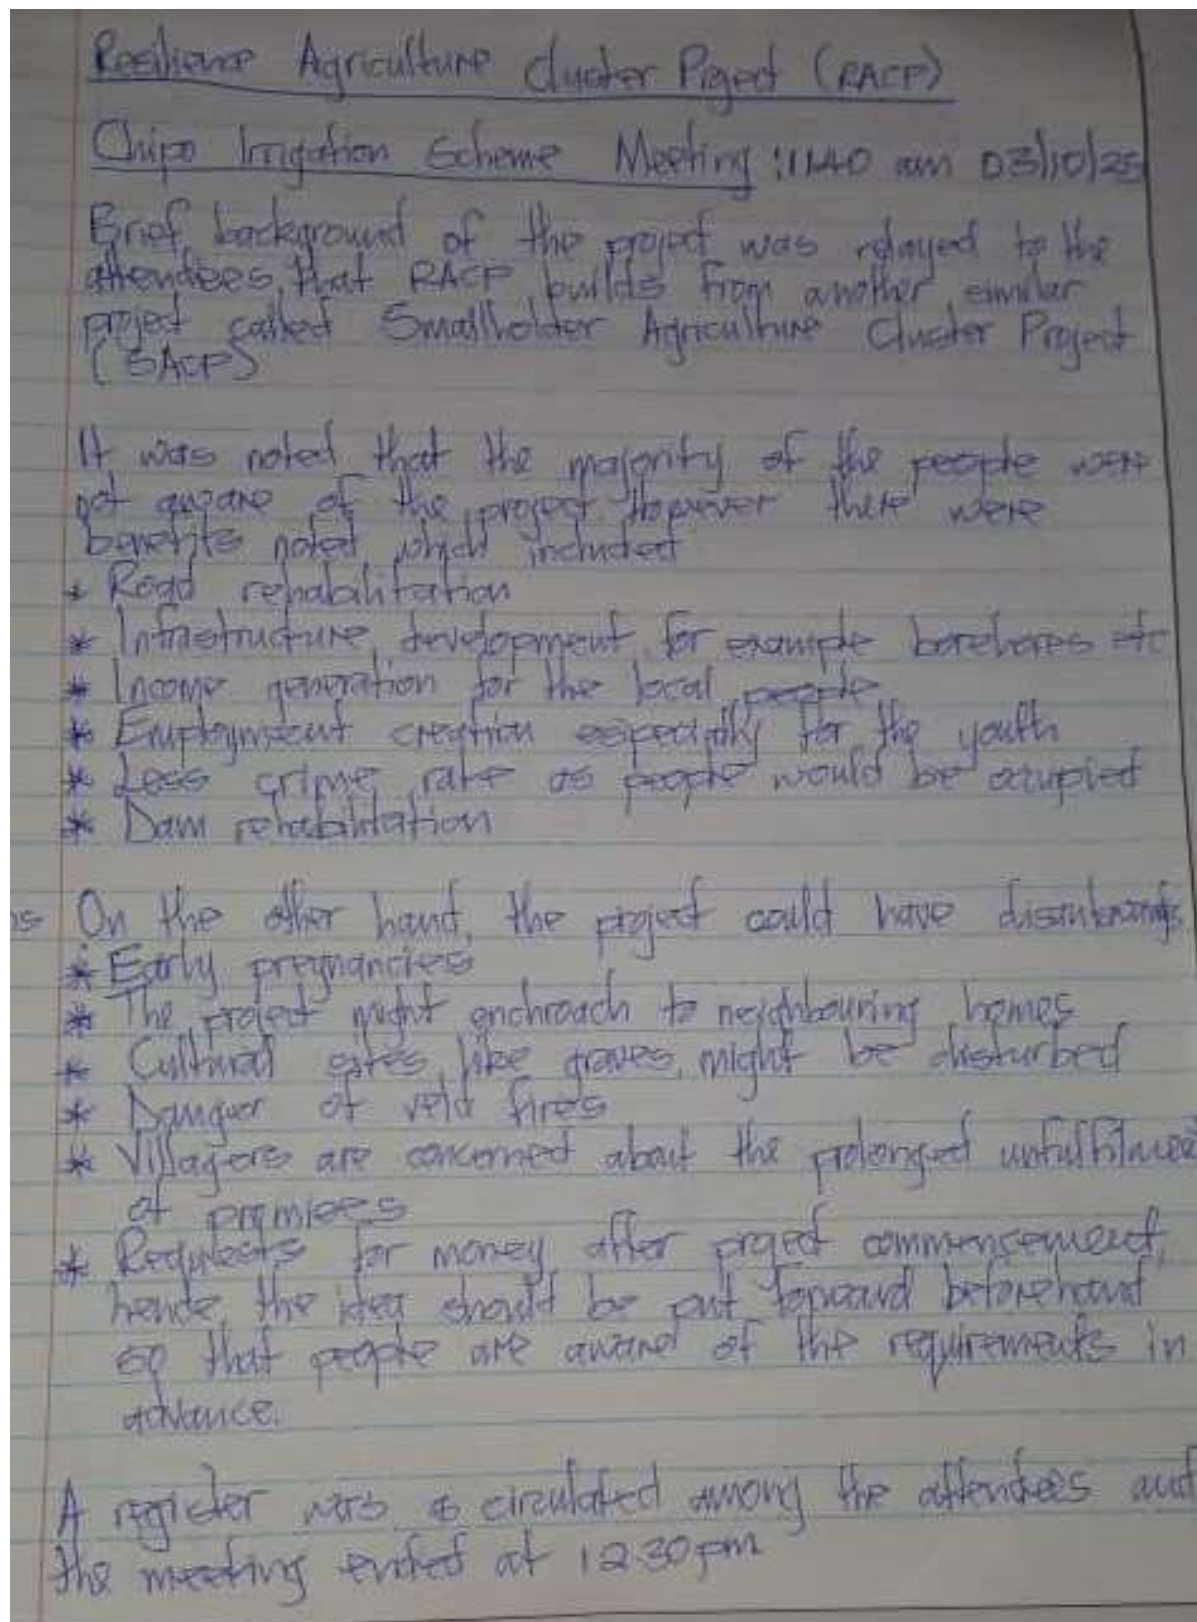 Resilience Agriculture Cluster Project (RACP)
Chipo Irrigation Scheme Meeting : 1140 am 03/10/25
Brief background of the project was relayed to the
attendees, that RACP builds from another similar
project called Smallholder Agriculture Cluster Project
(SACP)
It was noted that the majority of the people were
not aware of the project. However there were
benefits noted which included
* Road rehabilitation
* Infrastructure development for example borehores etc
* Income generation for the local people
* Employment creation especially for the youth
* Less crime rate as people would be occupied
* Dam rehabilitation
On the other hand, the project could have
* Early pregnancies
* The project might enchroach to neighbouring homes
* Cultural sites like graves might be disturbed
* Danger of veld fires
* Villagers are concerned about the prolonged
of promises
* Requests for money after project commencement,
hence the idea should be put forward beforehand
so that people are aware of the requirements in
advance.
A register was circulated among the attendees and
the meeting ended at 1230pm